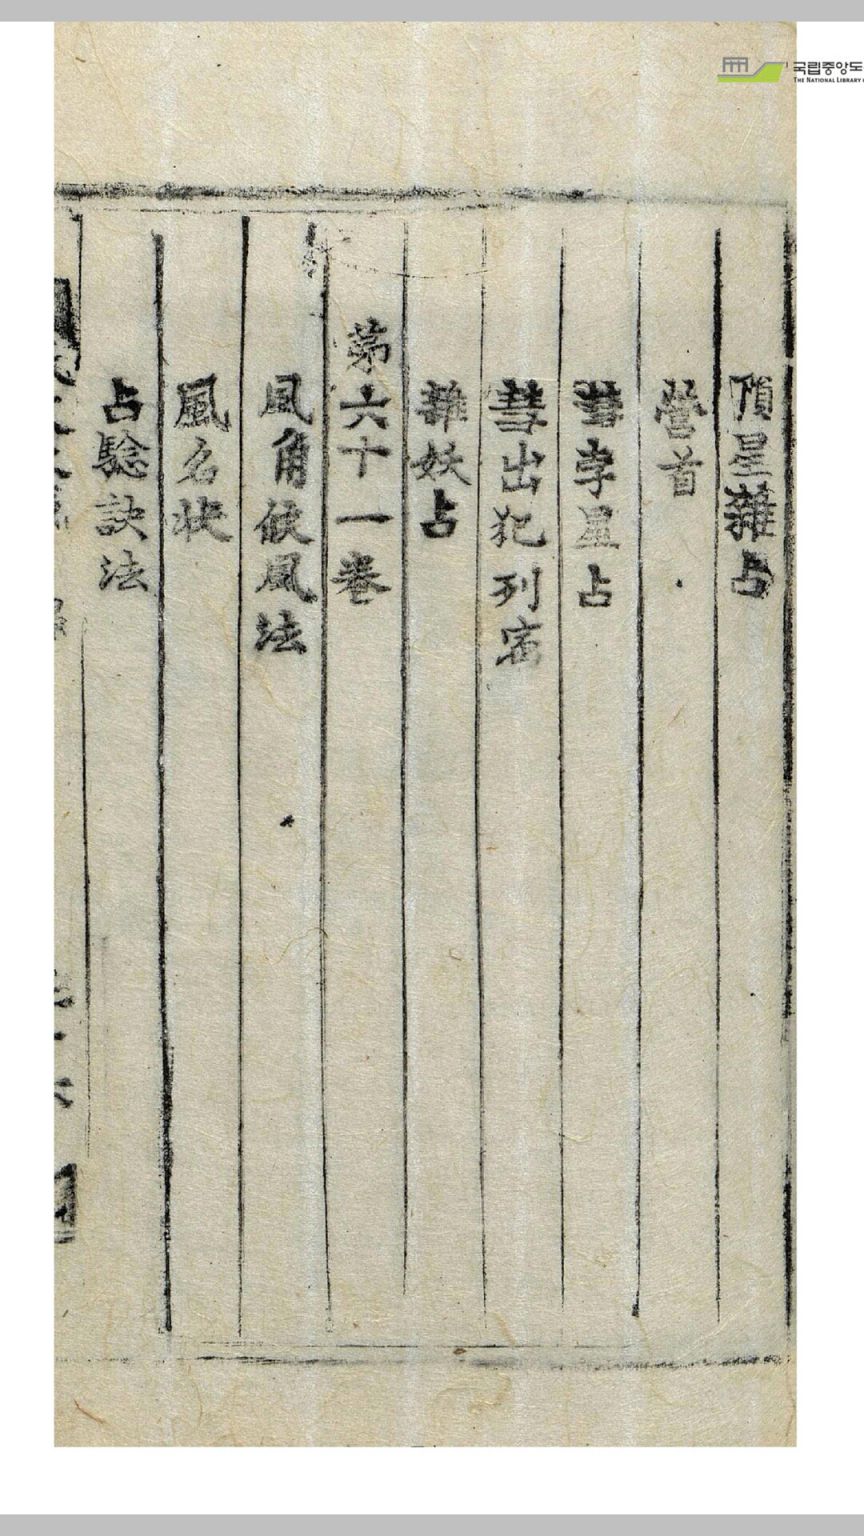 隕星雜占
營首
彗孛星占
彗出犯列宿
雜妖占
第六十一卷
風角候風法
風名状
占驗訣法
국립중앙도
THE NATIONAL LIBRARY